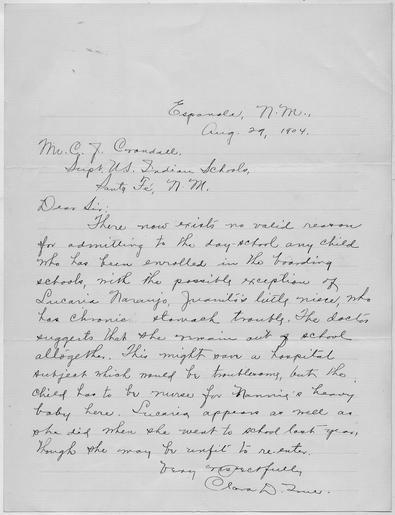 Espanola, N.M.,
Aug. 29, 1904.
Mr. C. J. Crandall,
Supt. U.S. Indian Schools,
Santa Fé, N.M.
Dear Sir:
There now exists no valid reason
for admitting to the day-school any child
who has been enrolled in the boarding
schools, with the possible exception of
Lucaria Naranjo, Juanita's little niece, who
has chronic stomach trouble. The doctor
suggests that she remain out of school
altogether. This might be a hospital
subject which would be troublesome, but the
child has to be nurse for Nannie's heavy
baby here. Lucaria appears as well as
she did when she went to school last year,
though she may be unfit to re-enter.
Very respectfully,
Clara D. True.